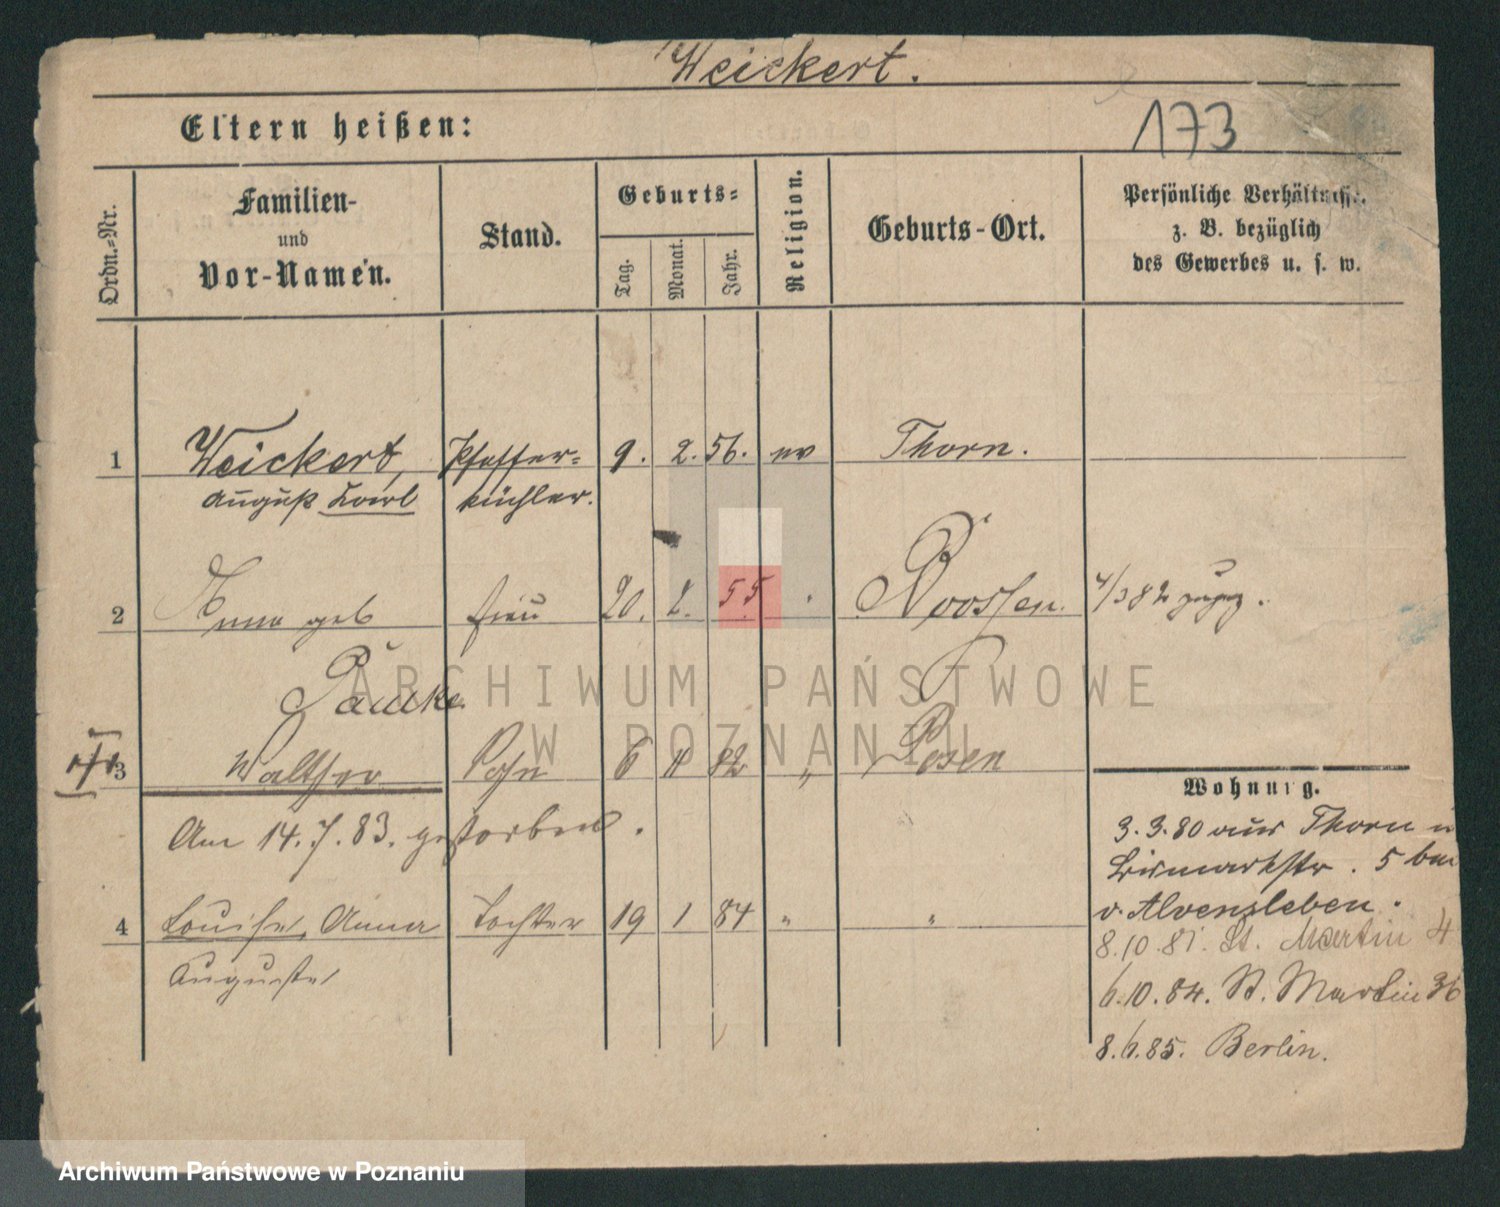 Weickert.
Eltern heißen:
173
Ordn.-Nr.
Familien-
und
Vor-Namen.
Stand.
Geburts-
Tag.
Monat.
Jahr.
Religion.
Geburts-Ort.
Persönliche Verhältnisse.
z. B. bezüglich
des Gewerbes u. s. w.
1 Weickert, Pfeffer- 9. 2. 56. ev Thorn.
August Karl küchler.
2 Anna geb Frau 20. 2. 55 Boossen. 4/3 82 zugez.
Pamke
3 Walther Sohn 6 11 82 " Posen
Am 14.7.83. gestorben.
4 Louise, Anna Tochter 19 1 84 " "
Auguste
Wohnung.
3.3.80 aus Thorn n
Bismarkstr. 5 bei
v. Alvensleben.
8.10.81. St. Martin 4
6.10.84. St. Martin 36
8.6.85. Berlin.
ARCHIWUM PAŃSTWOWE
W POZNANIU
Archiwum Państwowe w Poznaniu